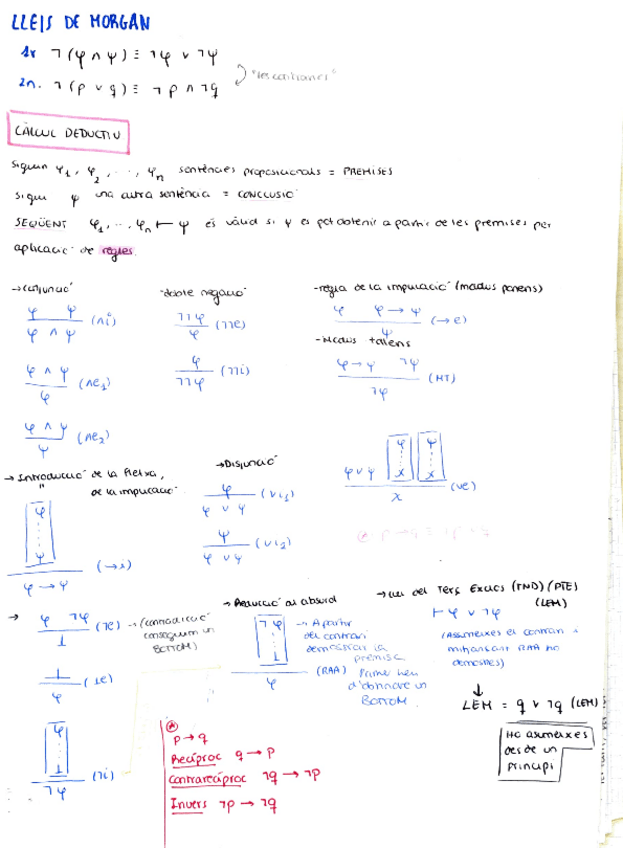 LLEIS DE MORGAN
1r ¬(φ ∧ ψ) ≡ ¬φ ∨ ¬ψ
2n. ¬(p ∨ q) ≡ ¬p ∧ ¬q
CÀLCUL DEDUCTIU
Siguin φ1, φ2, ..., φn sentències proposicionals = PREMISES
Sigui ψ una altra sentència = CONCLUSIÓ
SEQÜENT φ1, ..., φn ⊢ ψ és vàlid si ψ es pot obtenir a partir de les premises per
aplicació de regles.
→ Conjunció
φ ψ
φ ∧ ψ (∧i)
φ ∧ ψ
φ (∧e1)
φ ∧ ψ
ψ (∧e2)
-doble negació
¬¬φ
φ (¬¬e)
φ
¬¬φ (¬¬i)
-regla de la implicació (modus ponens)
φ φ → ψ
ψ (→e)
-Modus tolens
φ → ψ ¬ψ
¬φ (MT)
→ Introducció de la fletxa,
de la implicació
φ
ψ
φ → ψ (→i)
→ Disjunció
φ
φ ∨ ψ (∨i1)
ψ
φ ∨ ψ (∨i2)
φ ∨ ψ φ ψ
x x
x (∨e)
p → q ≡ ¬p ∨ q
→ φ ¬φ
⊥ (¬e) → (contradicció
conseguim un
BOTTOM)
⊥
φ (⊥e)
φ
⊥
¬φ (¬i)
→ Reducció al absurd
¬φ
⊥
φ (RAA)
→ A partir
del contrari
demostrar la
premisa
Primer heu
d'obtenir un
BOTTOM.
→ Llei del Terç Exclòs (TND) (PTE)
(LEM)
⊢ φ ∨ ¬φ
(Assumeixes el contrari i
mitjançant RAA ho
demostres)
↓
LEM = q ∨ ¬q (LEM)
HO assumeixes
des de un
principi
p → q
Recíproc q → p
Contrarecíproc ¬q → ¬p
Invers ¬p → ¬q